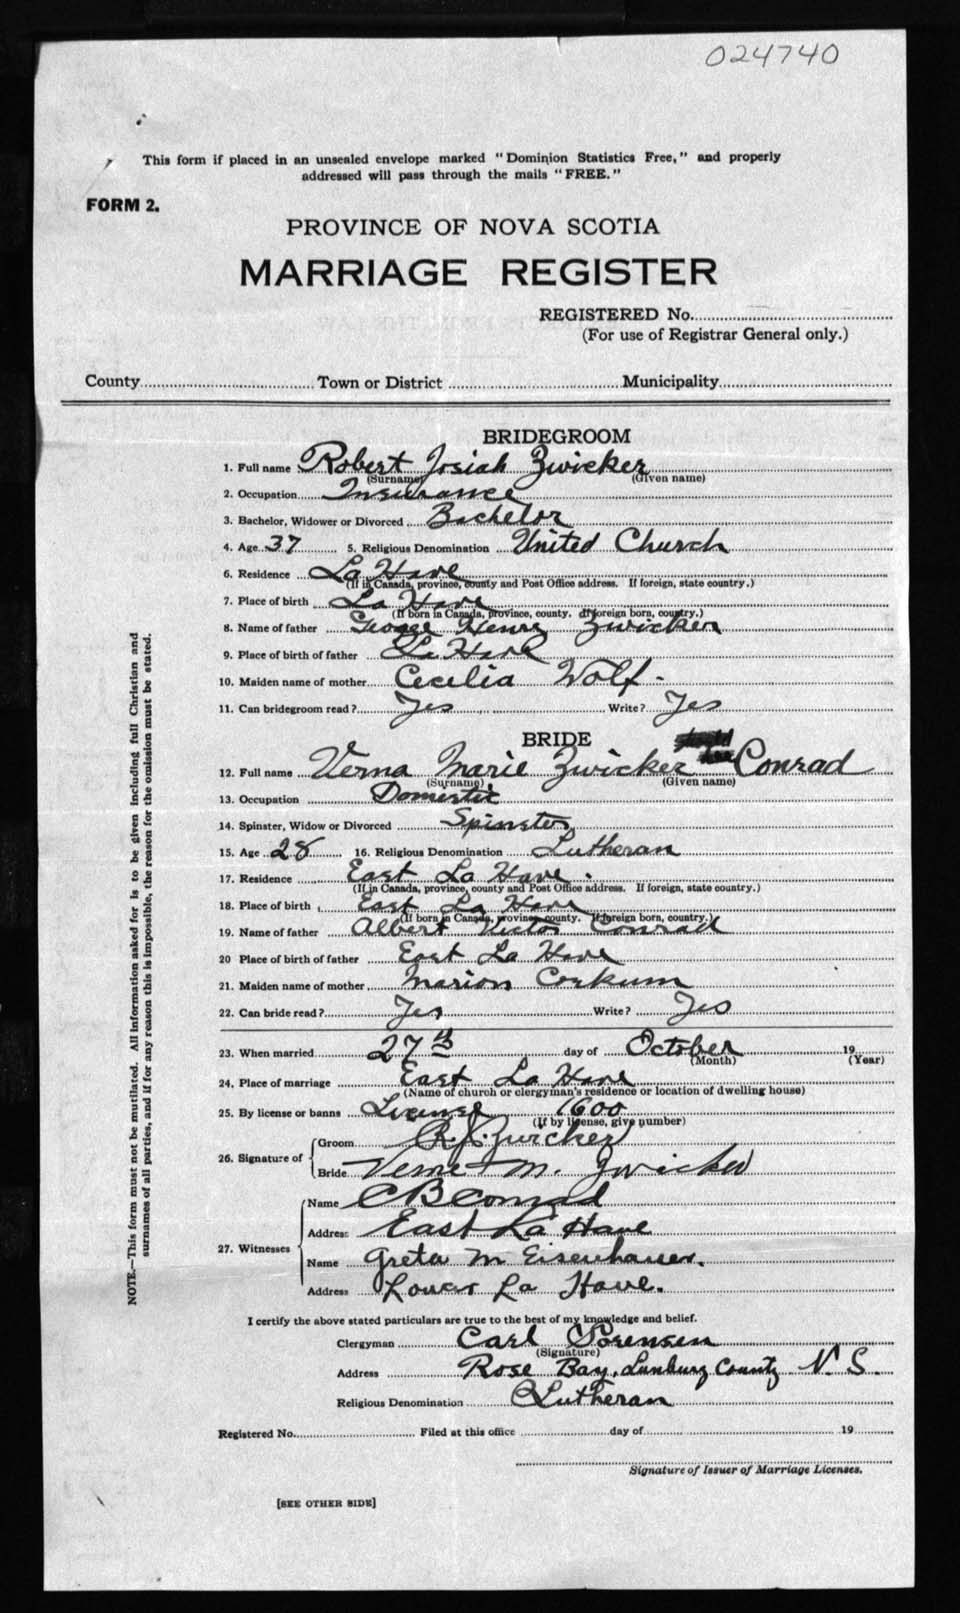 024740
This form if placed in an unsealed envelope marked "Dominion Statistics Free," and properly
addressed will pass through the mails "FREE."
FORM 2.
PROVINCE OF NOVA SCOTIA
MARRIAGE REGISTER
REGISTERED No.
(For use of Registrar General only.)
County Town or District Municipality
BRIDEGROOM
1. Full name Robert Josiah Zwicker
(Surname) (Given name)
2. Occupation Insurance
3. Bachelor, Widower or Divorced Bachelor
4. Age 37 5. Religious Denomination United Church
6. Residence La Have
(If in Canada, province, county and Post Office address. If foreign, state country.)
7. Place of birth La Have
(If born in Canada, province, county. If foreign born, country.)
8. Name of father George Henry Zwicker
9. Place of birth of father La Have
10. Maiden name of mother Cecilia Wolf.
11. Can bridegroom read? Yes Write? Yes
BRIDE
12. Full name Verna Marie Zwicker Conrad
(Surname) (Given name)
13. Occupation Domestic
14. Spinster, Widow or Divorced Spinster
15. Age 28 16. Religious Denomination Lutheran
17. Residence East La Have.
(If in Canada, province, county and Post Office address. If foreign, state country.)
18. Place of birth East La Have
(If born in Canada, province, county. If foreign born, country.)
19. Name of father Albert Victor Conrad
20 Place of birth of father East La Have
21. Maiden name of mother Marion Corkum
22. Can bride read? Yes Write? Yes
23. When married 27th day of October 19
(Month) (Year)
24. Place of marriage East La Have
(Name of church or clergyman's residence or location of dwelling house)
25. By license or banns License 1600
(If by license, give number)
26. Signature of Groom R. J. Zwicker
Bride Verna M. Zwicker
27. Witnesses Name C B Conrad
Address East La Have
Name Greta M Eisenhauer.
Address Lower La Have.
I certify the above stated particulars are true to the best of my knowledge and belief.
Clergyman Carl Sorensen
(Signature)
Address Rose Bay, Lunburg County N. S.
Religious Denomination Lutheran
Registered No. Filed at this office day of 19
Signature of Issuer of Marriage Licenses.
[SEE OTHER SIDE]
NOTE.—This form must not be mutilated. All information asked for is to be given including full Christian and
surnames of all parties, and if for any reason this is impossible, the reason for the omission must be stated.